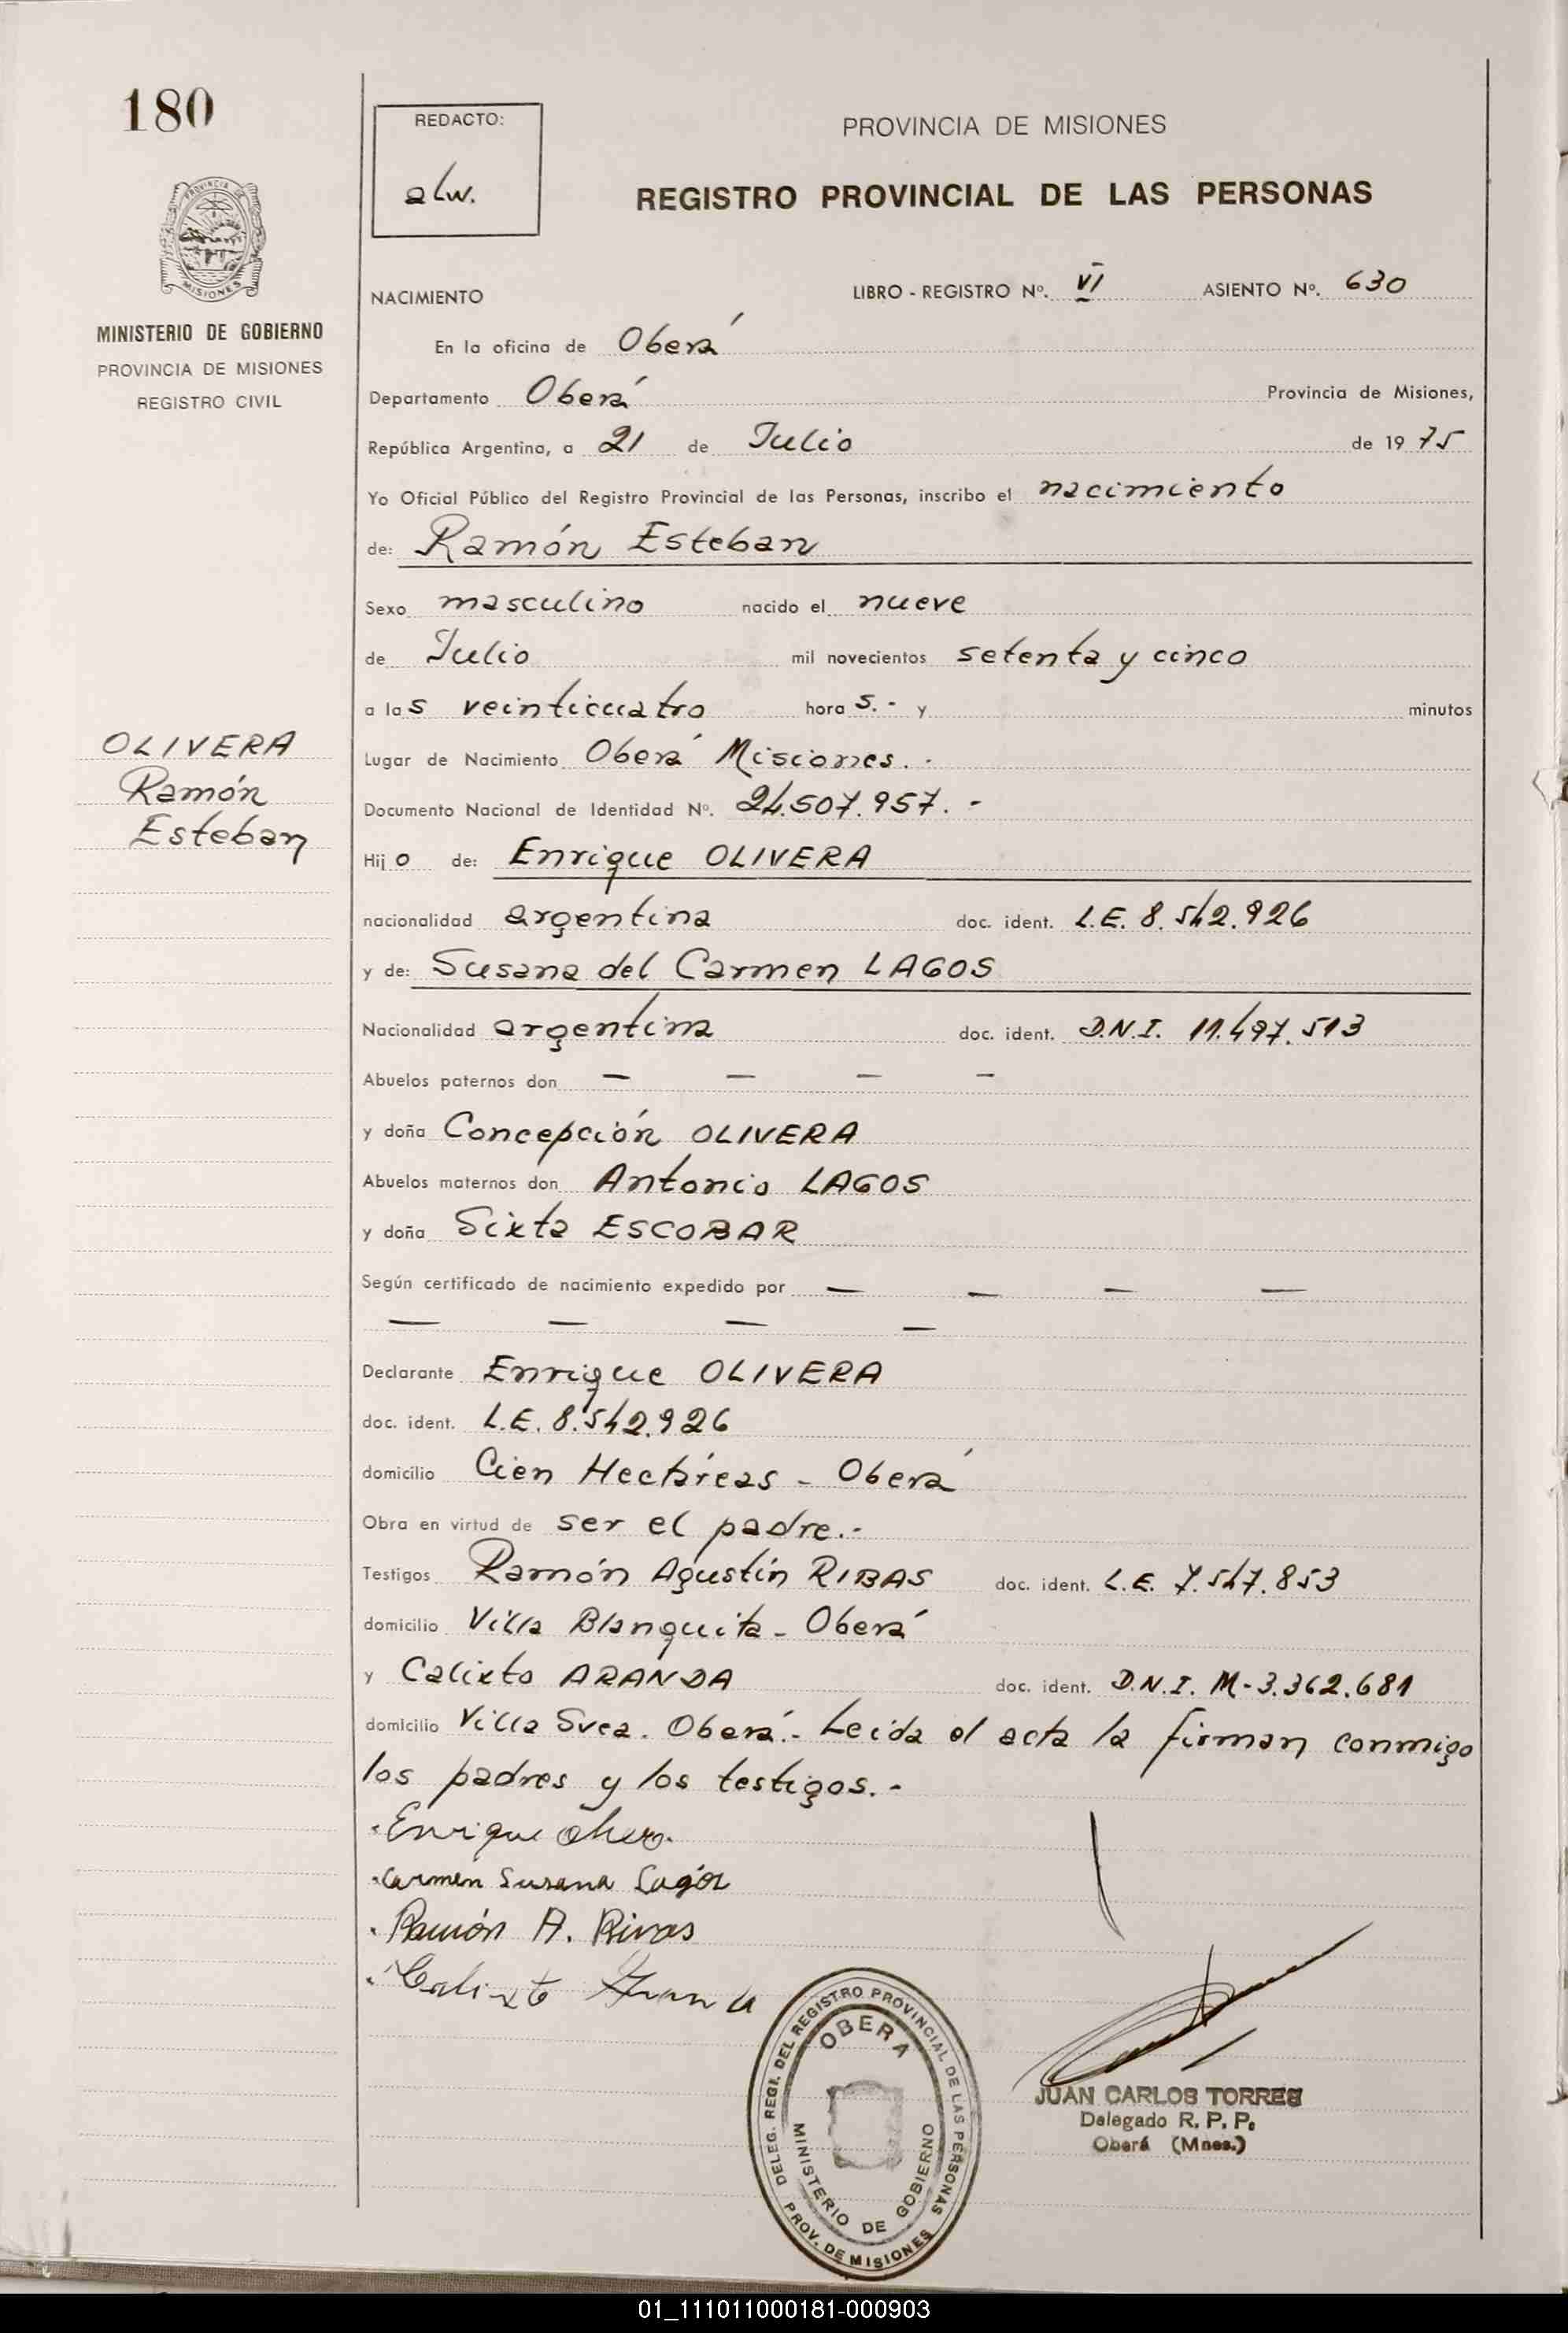 180
REDACTO:
alw.
PROVINCIA DE MISIONES
REGISTRO PROVINCIAL DE LAS PERSONAS
MISIONES
MINISTERIO DE GOBIERNO
PROVINCIA DE MISIONES
REGISTRO CIVIL
NACIMIENTO LIBRO - REGISTRO Nº. VI ASIENTO Nº. 630
En la oficina de Oberá
Departamento Oberá Provincia de Misiones,
República Argentina, a 21 de Julio de 1975
Yo Oficial Público del Registro Provincial de las Personas, inscribo el nacimiento
de: Ramón Esteban
Sexo masculino nacido el nueve
de Julio mil novecientos setenta y cinco
a las veinticuatro horas.- y minutos
OLIVERA
Ramón
Esteban
Lugar de Nacimiento Oberá Misiones.-
Documento Nacional de Identidad Nº. 24.507.957.-
Hijo de: Enrique OLIVERA
nacionalidad argentina doc. ident. L.E. 8.542.926
y de: Susana del Carmen LAGOS
Nacionalidad argentina doc. ident. D.N.I. 11.497.513
Abuelos paternos don — — — —
y doña Concepción OLIVERA
Abuelos maternos don Antonio LAGOS
y doña Sixta ESCOBAR
Según certificado de nacimiento expedido por — — — —
— — — —
Declarante Enrique OLIVERA
doc. ident. L.E. 8.542.926
domicilio Cien Hectáreas - Oberá
Obra en virtud de ser el padre.-
Testigos Ramón Agustín RIBAS doc. ident. L.E. 7.547.853
domicilio Villa Blanquita - Oberá
y Calixto ARANDA doc. ident. D.N.I. M-3.362.681
domicilio Villa Svea. Oberá.- Leida el acta la firman conmigo
los padres y los testigos.-
Enrique
Carmen Susana Lagos
Ramón A. Rivas
Calixto
DELEG. REGI. DEL REGISTRO PROVINCIAL DE LAS PERSONAS
PROV. DE MISIONES
OBERA
MINISTERIO DE GOBIERNO
JUAN CARLOS TORRES
Delegado R. P. P.
Oberá (Mnes.)
01_111011000181-000903